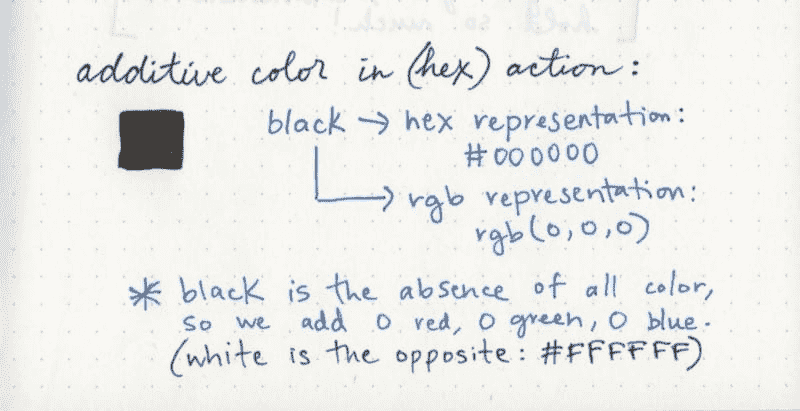 additive color in (hex) action:
black → hex representation:
#000000
rgb representation:
rgb(0,0,0)
* black is the absence of all color,
so we add 0 red, 0 green, 0 blue.
(white is the opposite: #FFFFFF)